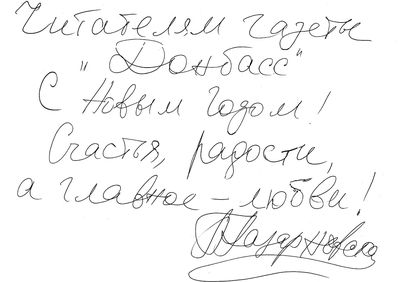 Читателям газеты
"Донбасс"
С Новым Годом!
Счастья, радости,
а главное – любви!